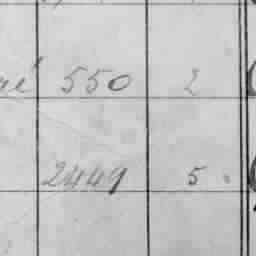 né 550 2
2449 5.